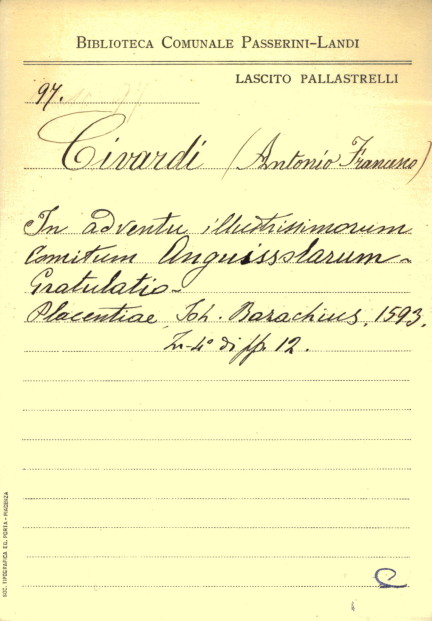 BIBLIOTECA COMUNALE PASSERINI-LANDI
LASCITO PALLASTRELLI
97.
Civardi (Antonio Francesco)
In adventu illustrissimorum
Comitum Anguissolarum -
Gratulatio -
Placentiae, Joh. Barachius, 1593.
In-4° di pp. 12.
SOC. TIPOGRAFICA ED. PORTA - PIACENZA
C